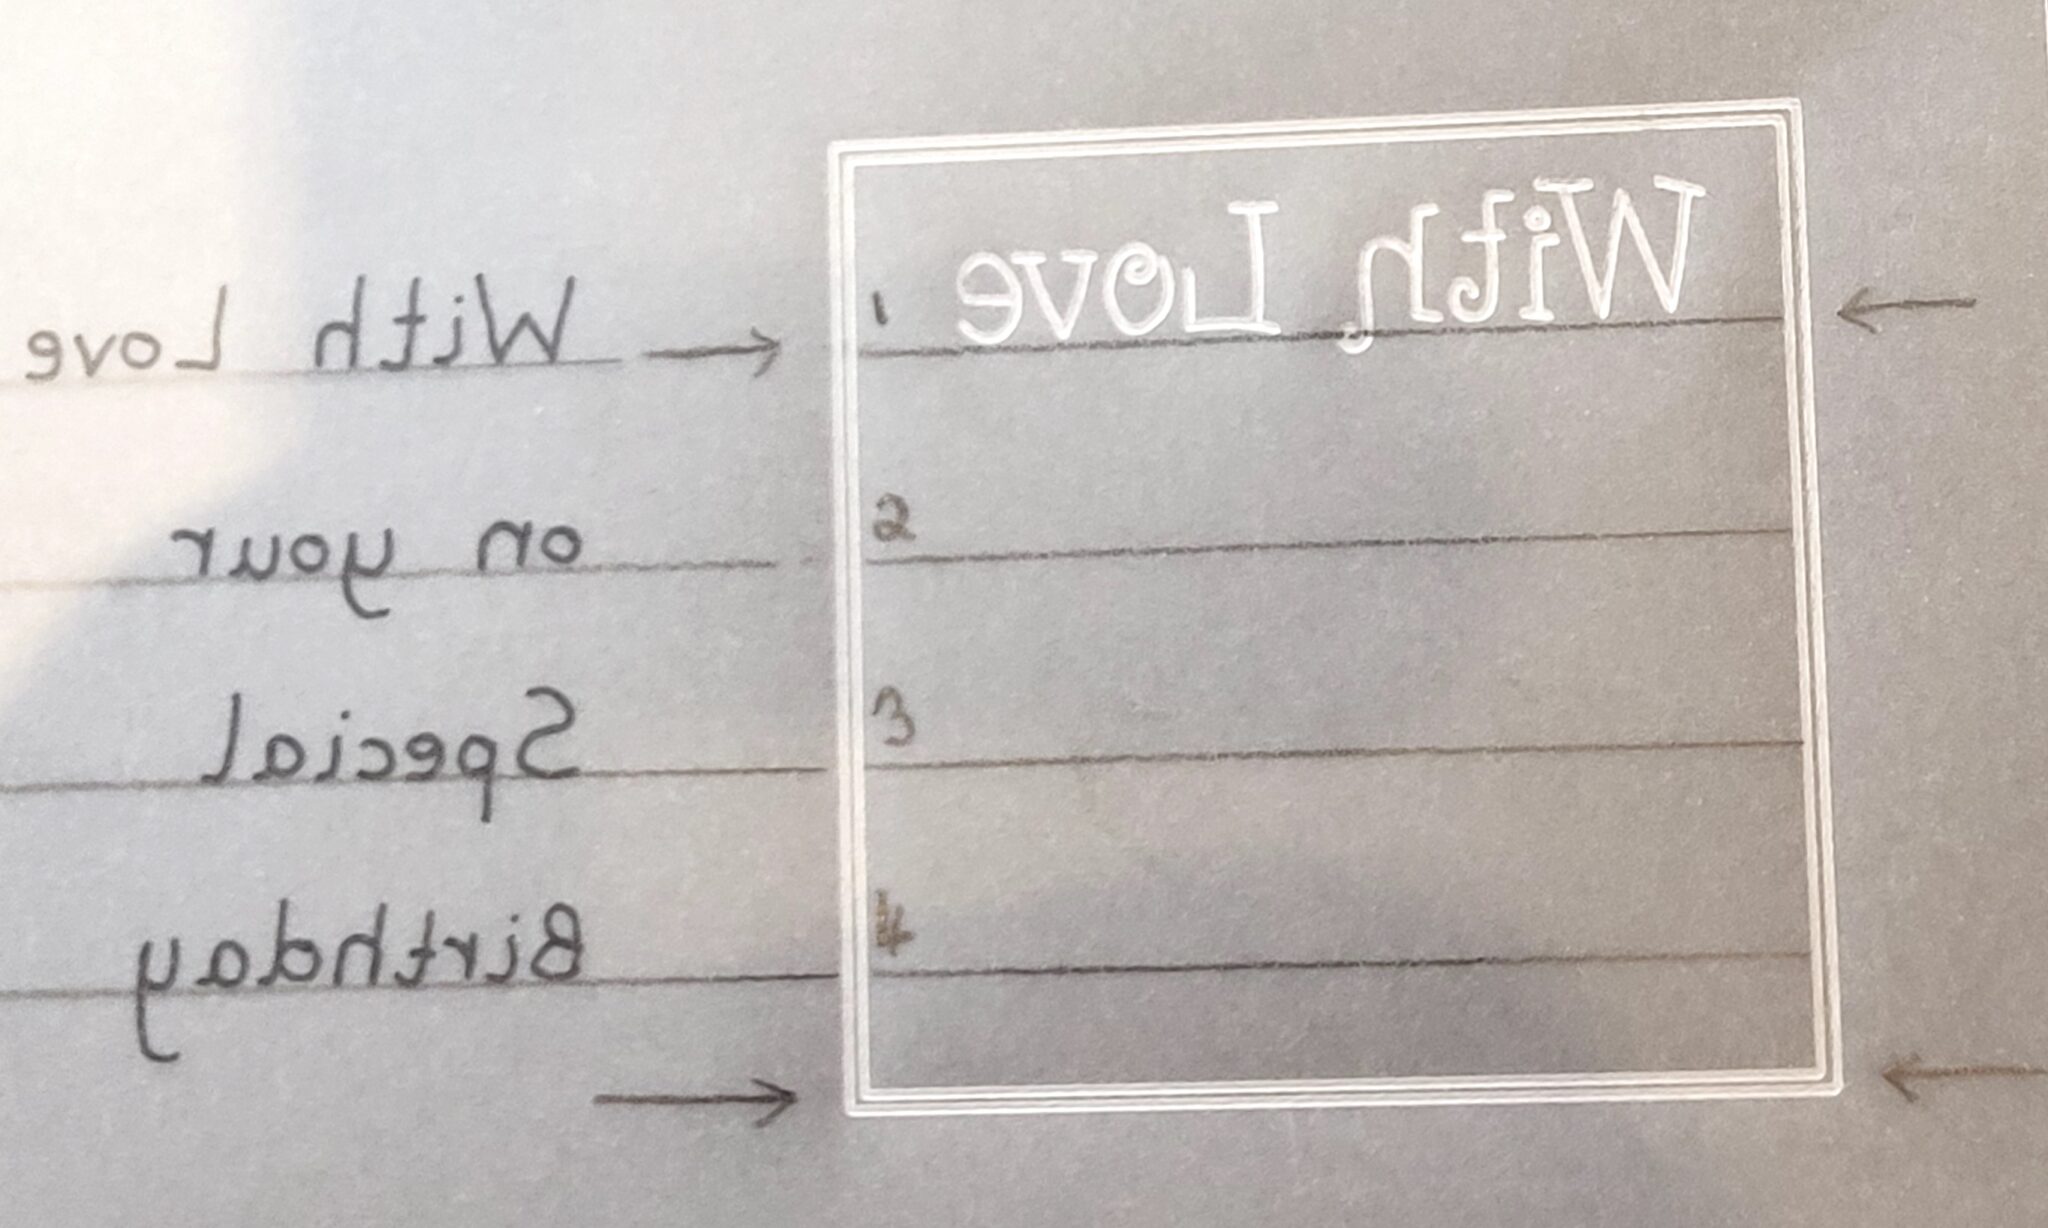 With Love
on your
Special
Birthday
1 With Love
2
3
4